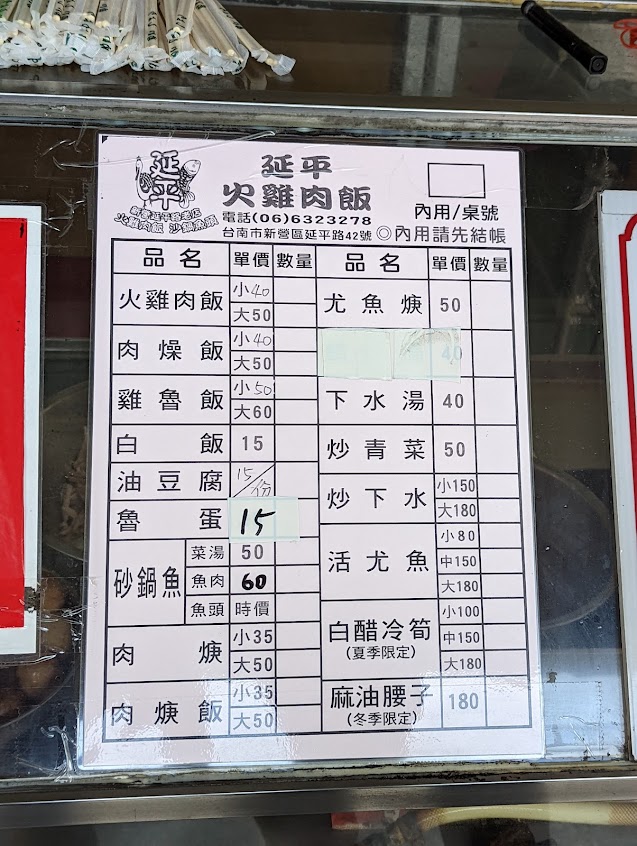 延平
新營延平路老店
火雞肉飯 沙鍋魚頭
延平
火雞肉飯
電話(06)6323278
台南市新營區延平路42號
內用/桌號
◎內用請先結帳
品名 單價 數量
火雞肉飯 小40
大50
肉燥飯 小40
大50
雞魯飯 小50
大60
白飯 15
油豆腐 15/份
魯蛋 15
砂鍋魚 菜湯 50
魚肉 60
魚頭 時價
肉焿 小35
大50
肉焿飯 小35
大50
品名 單價 數量
尤魚焿 50
40
下水湯 40
炒青菜 50
炒下水 小150
大180
活尤魚 小80
中150
大180
白醋冷筍 小100
(夏季限定) 中150
大180
麻油腰子 180
(冬季限定)